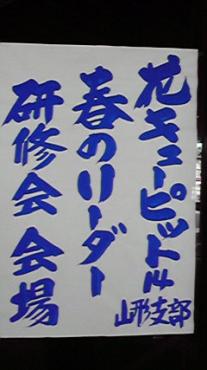 花キューピット
山形支部
春のリーダー
研修会会場